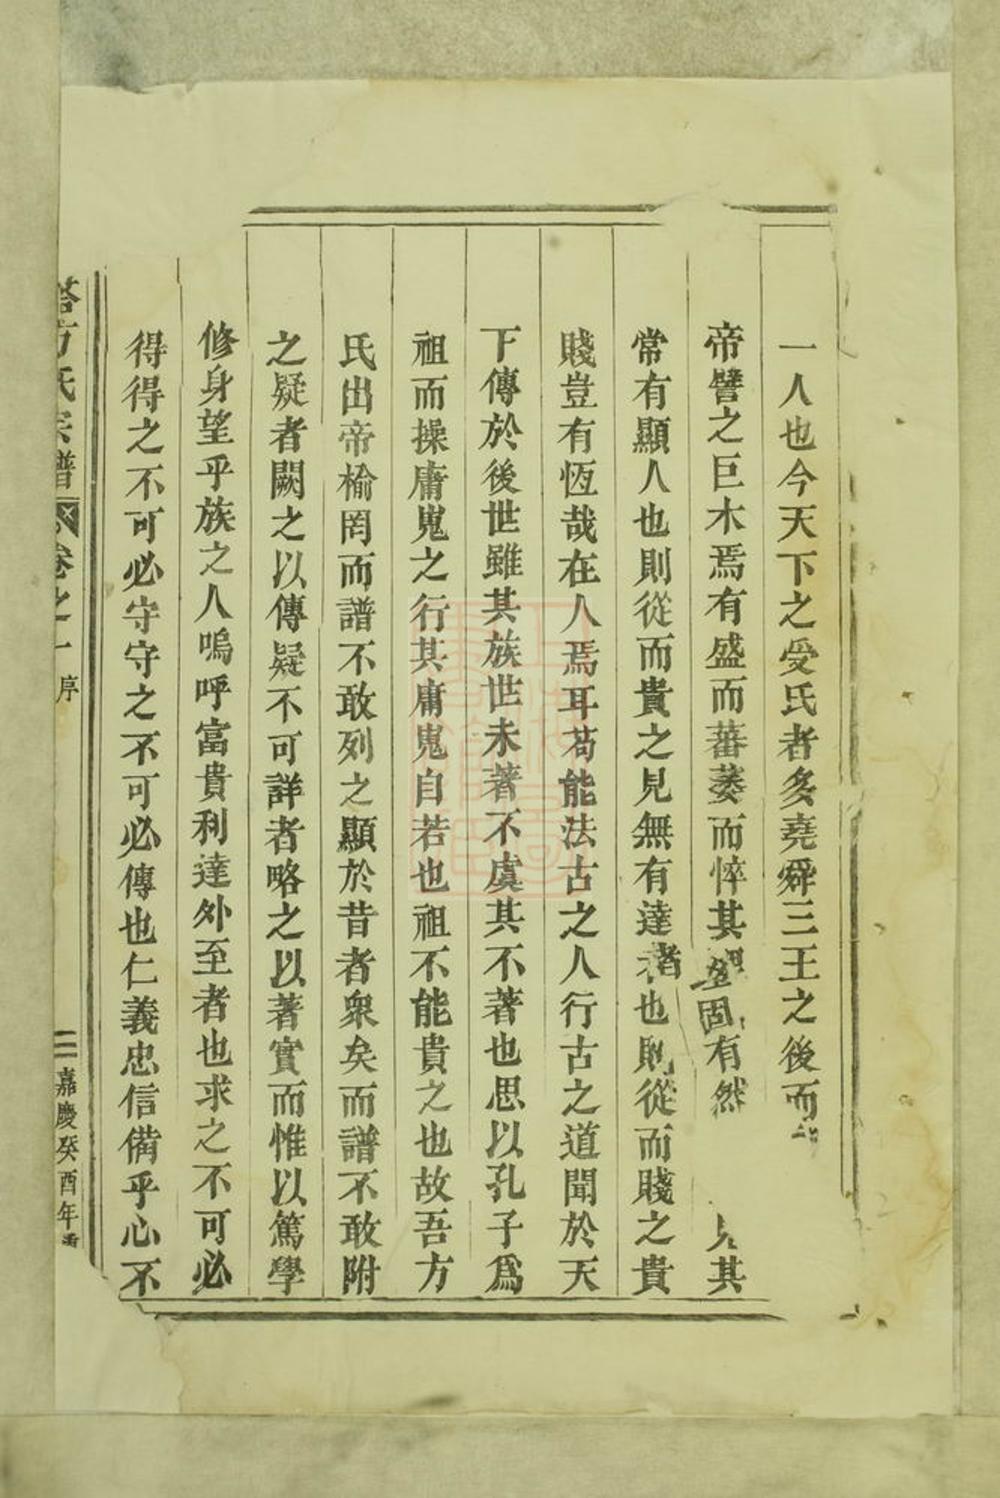 一人也今天下之受氏者多堯舜三王之後而
帝譬之巨木焉有盛而蕃萎而悴其固有然其
常有顯人也則從而貴之見無有達者也則從而賤之貴
賤豈有恆哉在人焉耳苟能法古之人行古之道聞於天
下傳於後世雖其族世未著不虞其不著也思以孔子爲
祖而操庸鬼之行其庸鬼自若也祖不能貴之也故吾方
氏出帝榆罔而譜不敢列之顯於昔者衆矣而譜不敢附
之疑者闕之以傳疑不可詳者略之以著實而惟以篤學
修身望乎族之人嗚呼富貴利達外至者也求之不可必
得得之不可必守守之不可必傳也仁義忠信備乎心不
塔方氏宗譜 卷之一 序 二 嘉慶癸酉年重